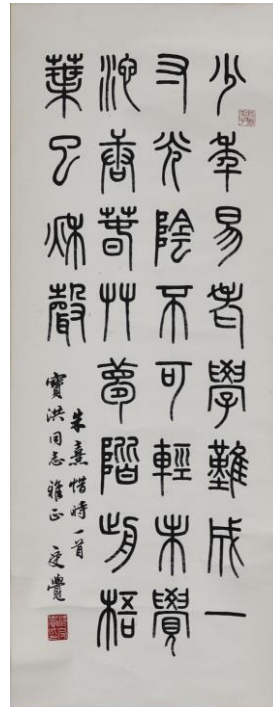 少年易老學難成一
寸光陰不可輕未覺
池唐春艸夢階前梧
葉已秋聲
朱熹惜時一首
寶洪同志雅正